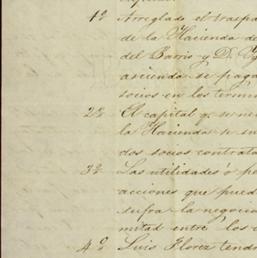 1º Arreglado el trasp
de la Hacienda de
del Barrio y D.
asciende se paga
socios en los térmi
2º El capital q.
la Hacienda
dos socios contrata
3º Las utilidades ó pe
acciones que pued
sufra la negocia
mitad entre los
4º Luis Florez tend